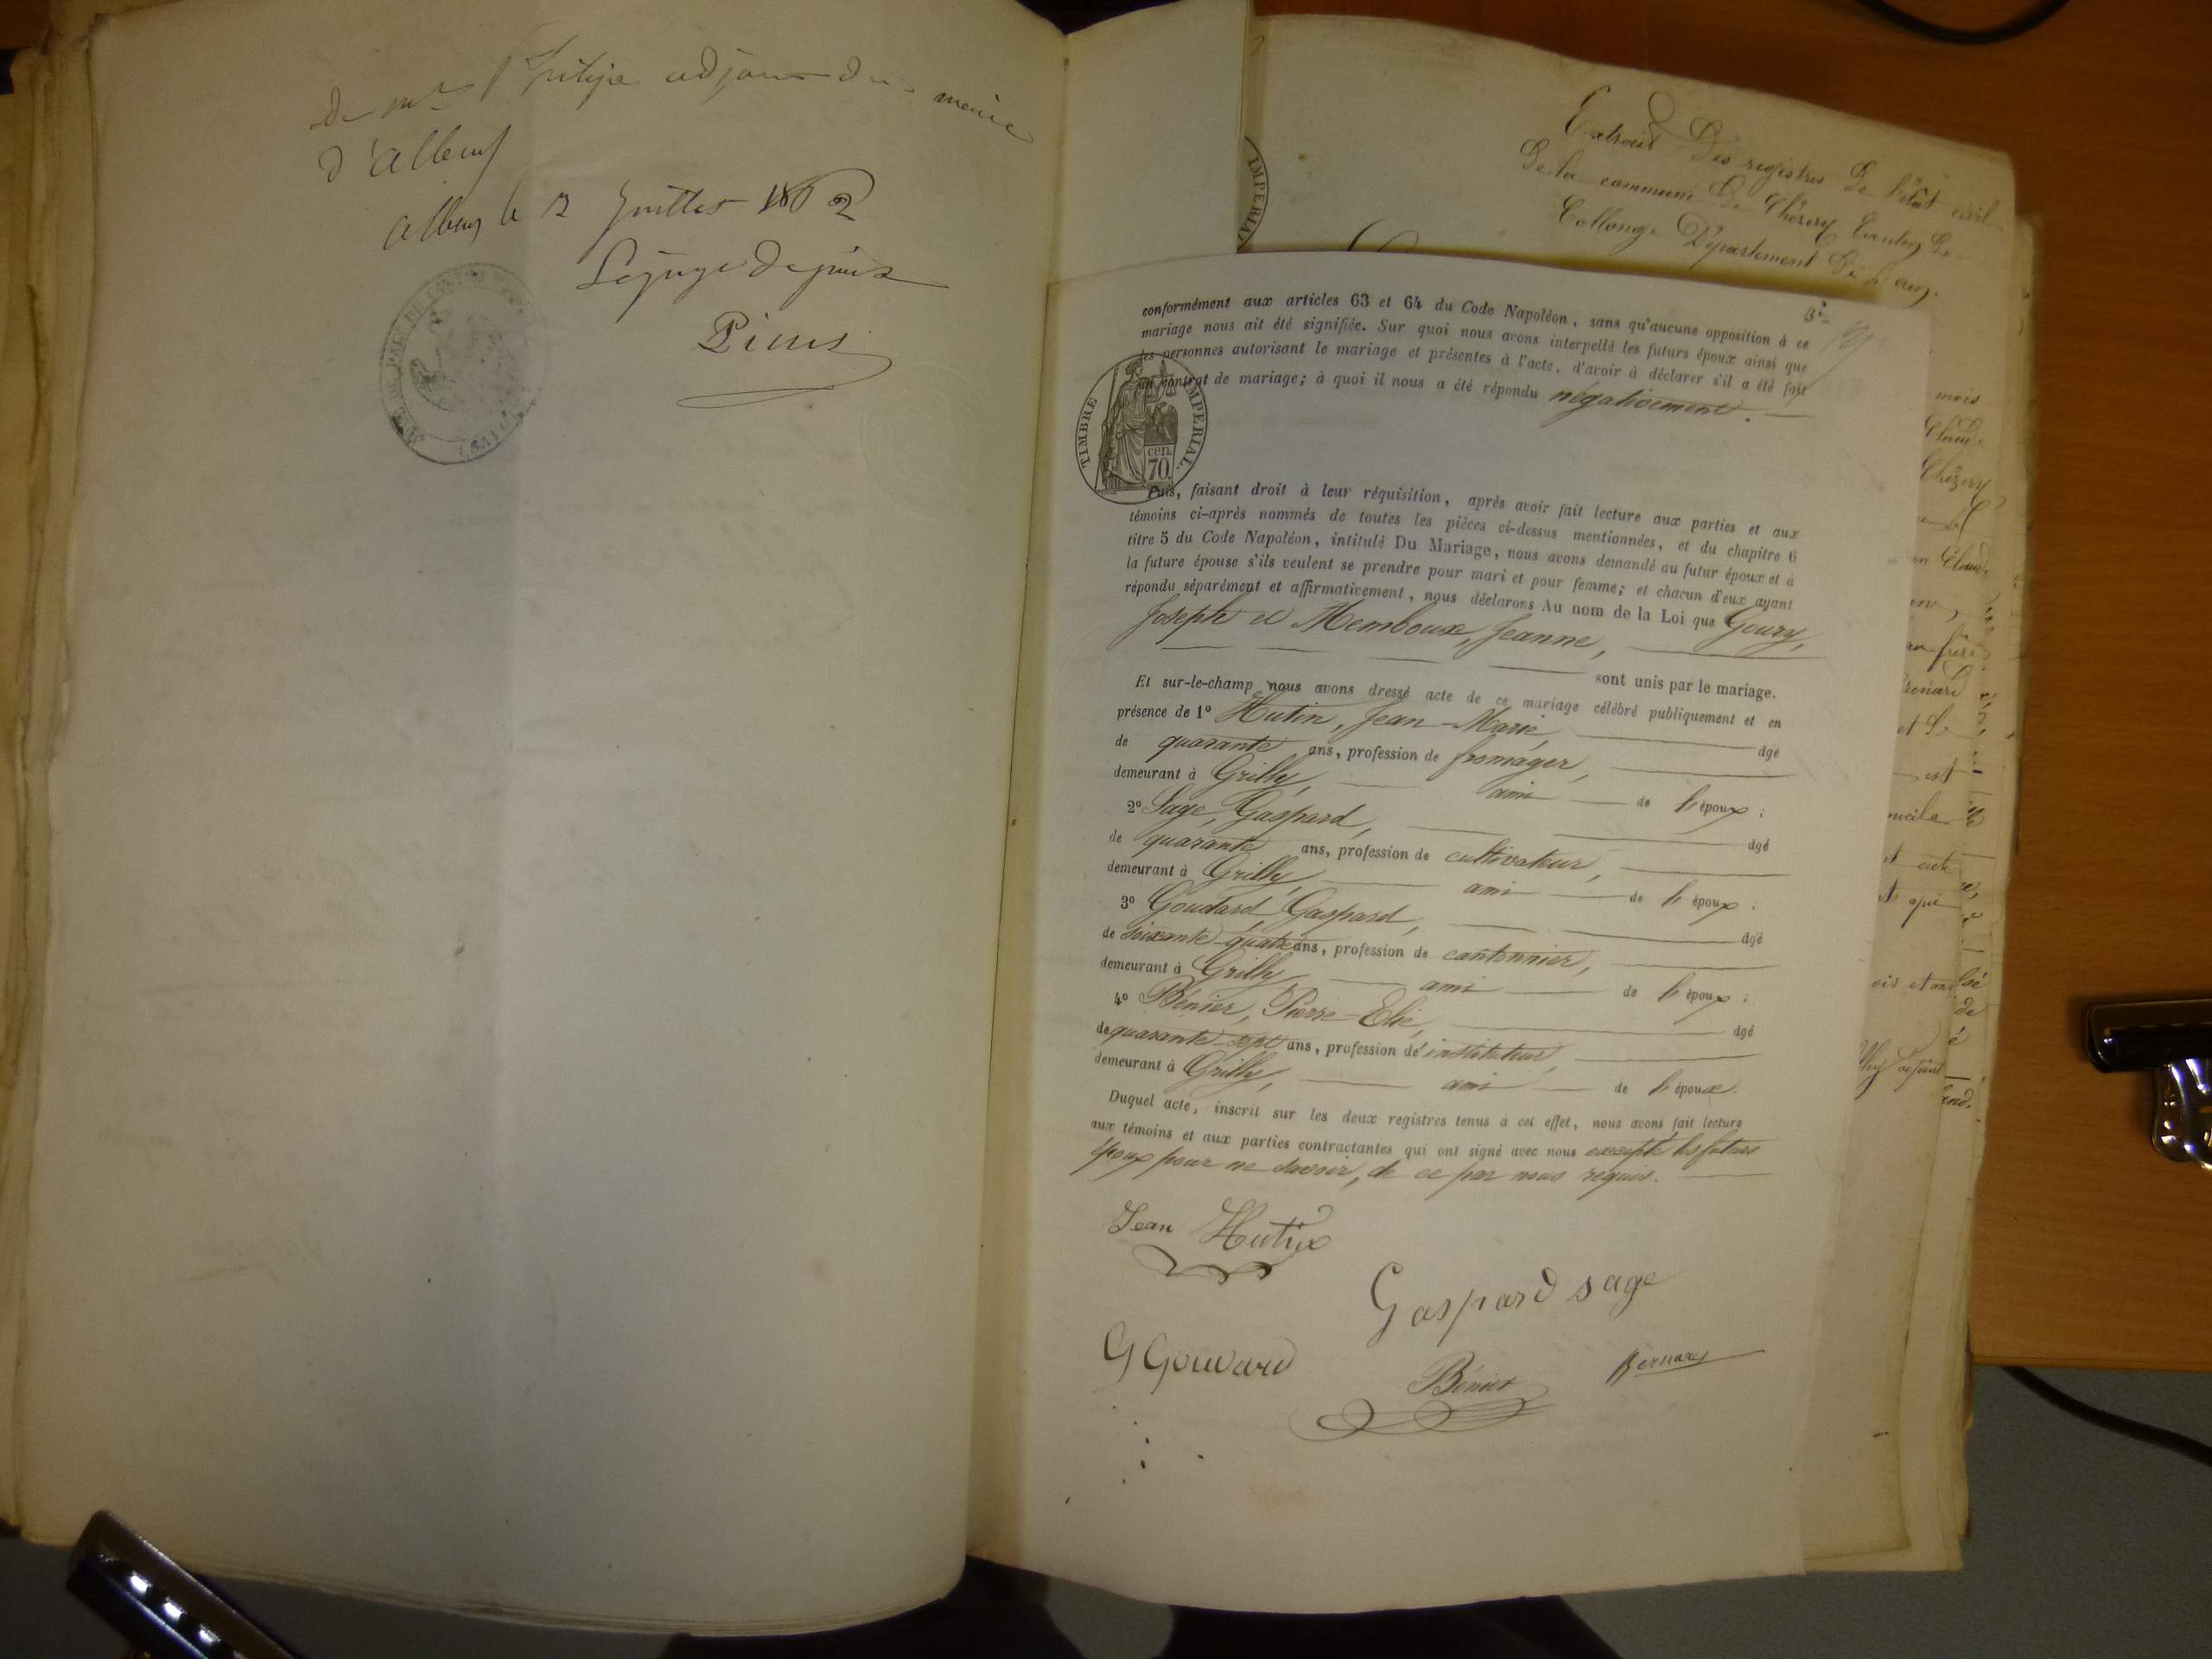 adjoint du maire
le 2 Juillet 1862
Le juge de paix
Extrait Des registres De l'état civil
De la commune De Chézery Canton De
Collonge Département De l'ain.
conformément aux articles 63 et 64 du Code Napoléon, sans qu'aucune opposition à ce
mariage nous ait été signifiée. Sur quoi nous avons interpellé les futurs époux ainsi que
les personnes autorisant le mariage et présentes à l'acte, d'avoir à déclarer s'il a été fait
un contrat de mariage; à quoi il nous a été répondu négativement.
TIMBRE IMPERIAL.
cen.
70
Puis, faisant droit à leur réquisition, après avoir fait lecture aux parties et aux
témoins ci-après nommés de toutes les pièces ci-dessus mentionnées, et du chapitre 6
titre 5 du Code Napoléon, intitulé Du Mariage, nous avons demandé au futur époux et à
la future épouse s'ils veulent se prendre pour mari et pour femme; et chacun d'eux ayant
répondu séparément et affirmativement, nous déclarons Au nom de la Loi que Goury,
Joseph et Memboux, Jeanne,
sont unis par le mariage.
Et sur-le-champ nous avons dressé acte de ce mariage célébré publiquement et en
présence de 1º Hutin, Jean-Marie, âgé
de quarante ans, profession de fromager,
demeurant à Grilly, ami de l'époux;
2º Sage, Gaspard, âgé
de quarante ans, profession de cultivateur,
demeurant à Grilly, ami de l'époux.
3º Goudard, Gaspard, âgé
de soixante-quatre ans, profession de cantonnier,
demeurant à Grilly, ami de l'époux;
4º Bénier, Pierre-Elie, âgé
de quarante-sept ans, profession de instituteur,
demeurant à Grilly, ami de l'épouse.
Duquel acte, inscrit sur les deux registres tenus a cet effet, nous avons fait lecture
aux témoins et aux parties contractantes qui ont signé avec nous excepté les futurs
époux pour ne savoir, de ce par nous requis.
Jean Hutin
Gaspard sage
Bénier